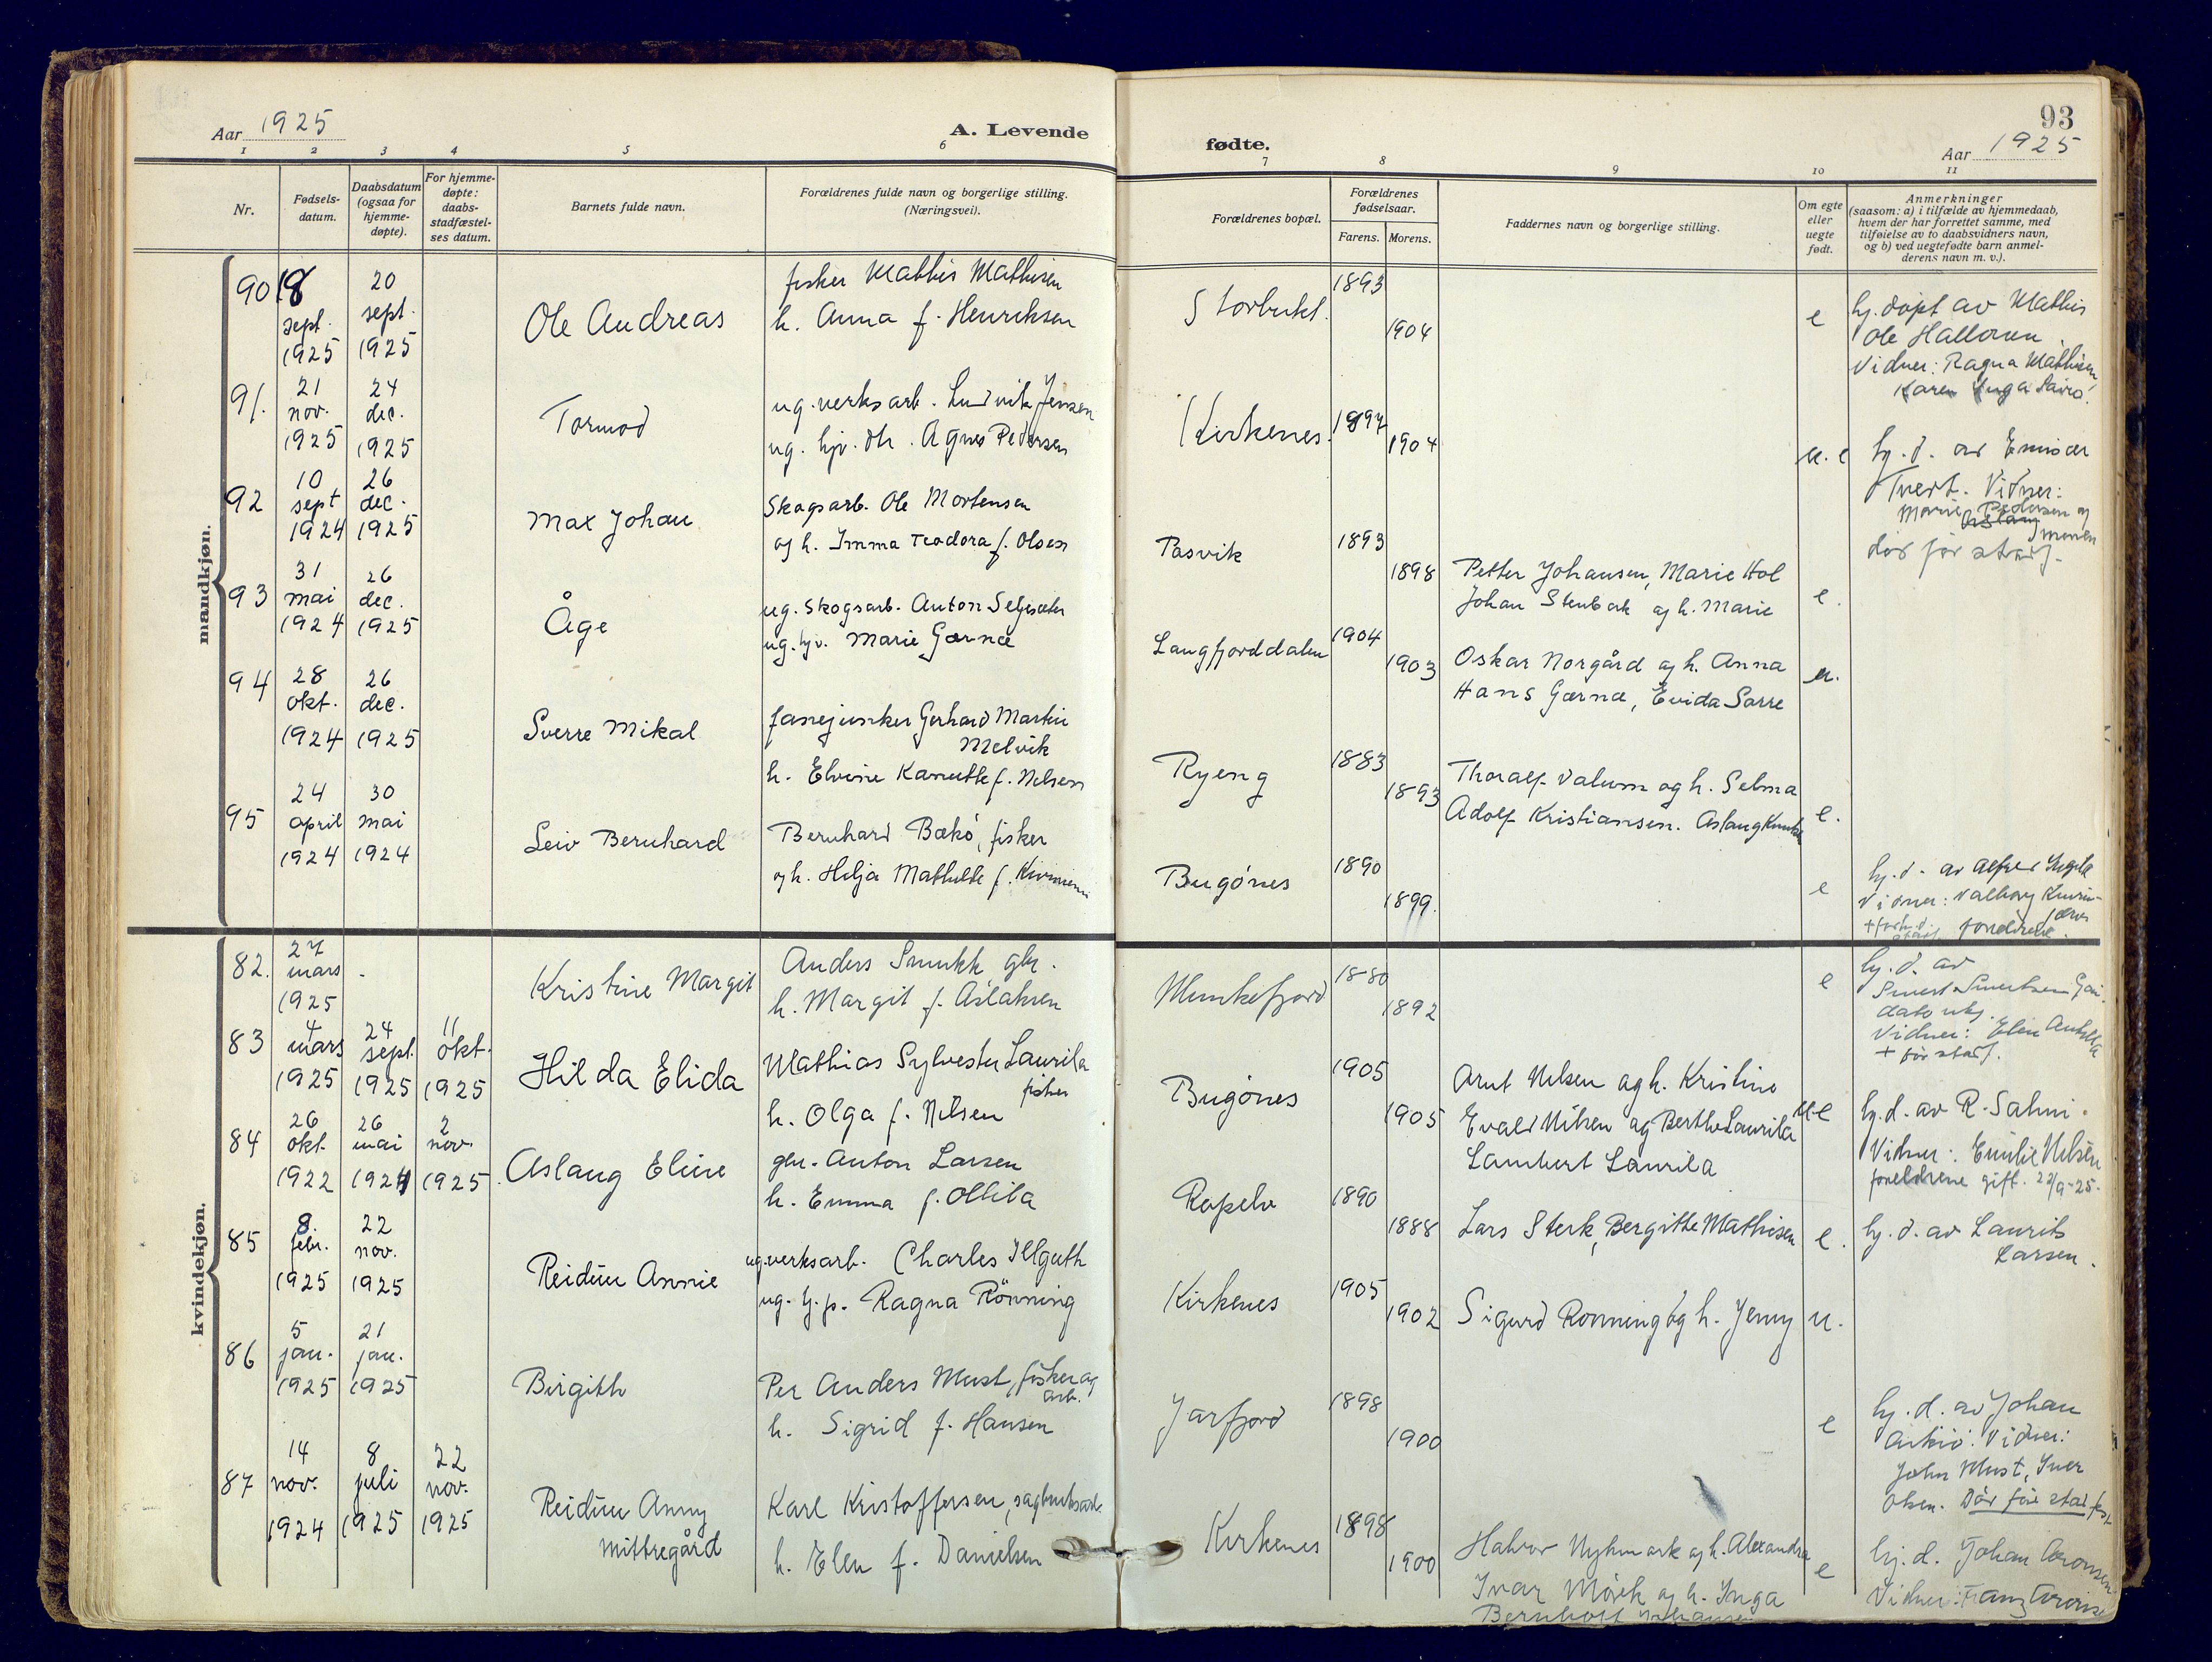 Aar 1925
A. Levende
fødte.
93
Aar 1925
1 2 3 4 5 6 7 8 9 10 11
Nr.
Fødsels-
datum.
Daabsdatum
(ogsaa for
hjemme-
døpte).
For hjemme-
døpte:
daabs-
stadfæstel-
ses datum.
Barnets fulde navn.
Forældrenes fulde navn og borgerlige stilling.
(Næringsvei).
Forældrenes bopæl.
Forældrenes
fødselsaar.
Farens. Morens.
Faddernes navn og borgerlige stilling.
Om egte
eller
uegte
født.
Anmerkninger
(saasom: a) i tilfælde av hjemmedaab,
hvem der har forrettet samme, med
tilføielse av to daabsvidners navn,
og b) ved uegtefødte barn anmel-
derens navn m. v.).
mandkjøn.
90
18
sept.
1925
20
sept.
1925
Ole Andreas
fisker Mathis Mathisen
h. Anna f. Henriksen
Storbukt.
1893
1904
e
hj. døpt av Mathis
Ole Halloven
Vidner: Ragna Mathisen,
Karen Inga
91.
21
nov.
1925
24
dec.
1925
Tormod
ug. verksarb. Ludvik Jensen
ug. hjv. dtr. Agnes Pedersen
Kirkenes.
1897
1904
u. e
hj. d. av
Vidner:
Marie Pedersen og
død før stadf.
92
10
sept
1924
26
dec.
1925
Max Johan
Skogsarb. Ole Mortensen
og h. Imma Teodora f. Olsen
Pasvik
1893
1898
Petter Johansen, Marie Hol
Johan Stenbak og h. Marie
e.
93
31
mai
1924
26
dec.
1925
Åge
ug. Skogsarb. Anton Seljesæter
ug. hjv. Marie Gærnæ
Langfjorddalen
1904
1903
Oskar Norgård og h. Anna
Hans Gærnæ, Evida Sarre
u.
94
28
okt.
1924
26
dec.
1925
Sverre Mikal
fanejunker Gerhard Martin
Melvik
h. Elvine Kanutte f. Nilsen
Ryeng
1883
1893
Thoralf Valum og h. Selma
Adolf Kristiansen. Aslaug
e.
95
24
april
1924
30
mai
1924
Leiv Bernhard
Bernhard Bækø, fisker
og h. Hilja Mathilde f.
Bugønes
1890
1899.
e
hj. d. av Alfred Ingila
Vidner: Valborg
foreldrene.
kvindekjøn.
82.
27
mars
1925
Kristine Margit
Anders Smukk gbr.
h. Margit f. Aslaksen
Munkefjord
1880
1892
e
hj. d. av
dato ukj.
Vidner: Elen
+ før stadf.
83
4
mars
1925
24
sept.
1925
11
okt.
1925
Hilda Elida
Mathias Sylvester Laurila
fisker
h. Olga f. Nilsen
Bugønes
1905
1905
Arnt Nilsen og h. Kristine
Evald Nilsen og Berthe Laurila
Lambert Laurila
u e
hj. d. av R. Salmi.
Vidner: Emilie Nilsen
foreldrene gift. 22/9-25.
84
26
okt.
1922
26
mai
1924
2
nov.
1925
Aslaug Eline
gbr. Anton Larsen
h. Emma f. Ollila
Ropelv
1890
1888
Lars Sterk, Bergitte Mathisen
e.
hj. d. av Laurits
Larsen.
85
8.
febr.
1925
22
nov.
1925
Reidun Annie
ug. verksarb. Charles Illguth
ug. hj. p. Ragna Rönning
Kirkenes
1905
1902
Sigurd Ronning og h. Jenny
u.
86
5
jan.
1925
21
jan.
1925
Birgith
Per Anders Must, fisker og
arb.
h. Sigrid f. Hansen
Jarfjord
1898
1900
e
hj. d. av Johan
Arkio. Vidner:
John Must, Iver
Olsen. Død før stadfest
87
14
nov.
1924
8
juli
1925
22
nov.
1925
Reidun Anny
Mittregård
Karl Kristoffersen, sagbruksarb.
h. Elen f. Danielsen
Kirkenes
1898
1900
Halvor Nymark og h. Alexandra
Ivar Mörk og h. Inga
Bernhoff Johansen
e
hj. d. Johan Aronsen
Vidner: Franz